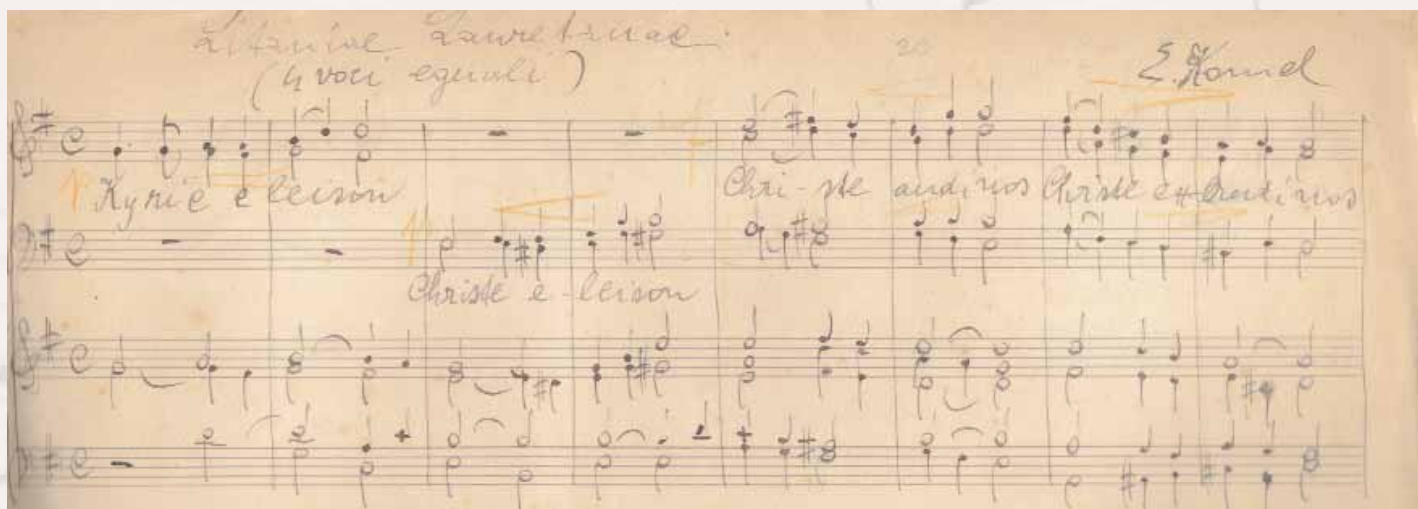 Litaniae Lauretanae.
(4 voci eguali)
20
E. Komel
Kyrie e leison
Chri-ste audi nos Christe exaudi nos
Christe e-leison